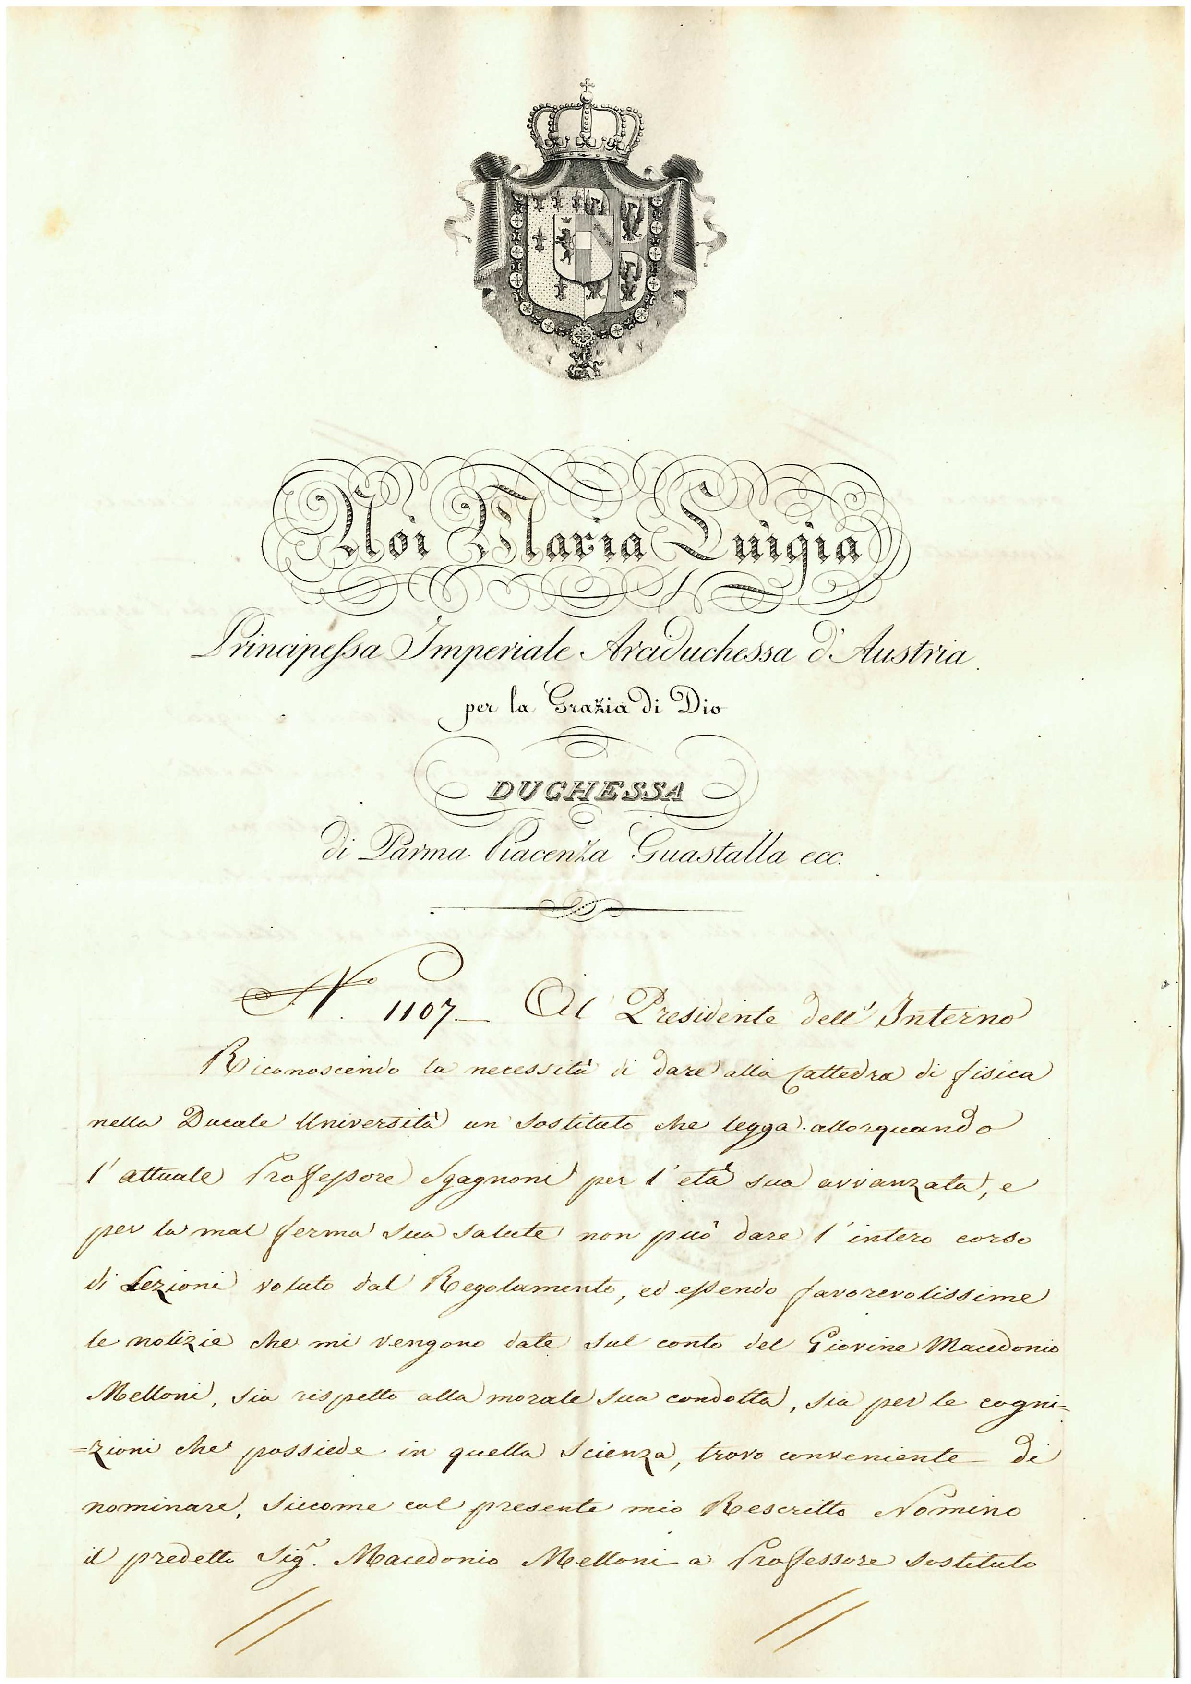 Noi Maria Luigia
Principessa Imperiale Arciduchessa d'Austria
per la Grazia di Dio
DUCHESSA
di Parma Piacenza Guastalla ecc.
N. 1107 — Al Presidente dell'Interno
Riconoscendo la necessità di dare alla Cattedra di fisica
nella Ducale Università un sostituto che legga allorquando
l'attuale Professore Sgagnoni per l'età sua avvanzata, e
per la mal ferma sua salute non può dare l'intero corso
di Lezioni voluto dal Regolamento, ed essendo favorevolissime
le notizie che mi vengono date sul conto del Giovine Macedonio
Melloni, sia rispetto alla morale sua condotta, sia per le cogni=
=zioni che possiede in quella Scienza, trovo conveniente di
nominare, siccome col presente mio Rescritto Nomino
il predetto Sigr. Macedonio Melloni a Professore sostituto